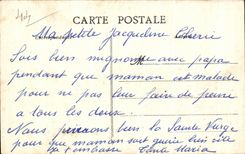 CARTE POSTALE
Ma petite Jacqueline Chérie
Sois bien mignonne avec papa
pendant que maman est malade
pour ne pas leur faire de peine
à tous les deux.
Nous prierons bien la Sainte Vierge
pour que maman soit guérie bien vite
Je t'embrasse Maria